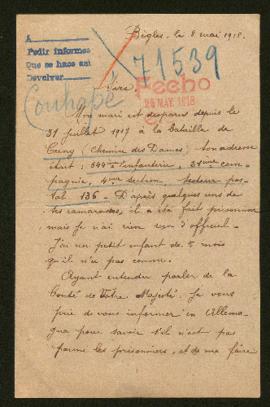 Bègles, le 8 mai 1918.
A
Pedir informes
Que se hace así
Devolver
71539
Hecho
25 MAY. 1918
Sire,
Mon mari est disparu depuis le
31 juillet 1917 à la bataille de
Cerny (Chemin des Dames) son adresse
était: 344e Infanterie, 21ème com-
pagnie, 4ème section, secteur pos-
tal 136. D'après quelques uns de
ses camarades, il a été fait prisonnier
mais je n'ai rien reçu d'officiel.
J'ai un petit enfant de 5 mois
qu'il n'a pas connu.
Ayant entendu parler de la
bonté de Votre Majesté. Je vous
prie de vous informer en Allema-
gne pour savoir s'il n'est pas
parmi les prisonniers, et de me faire